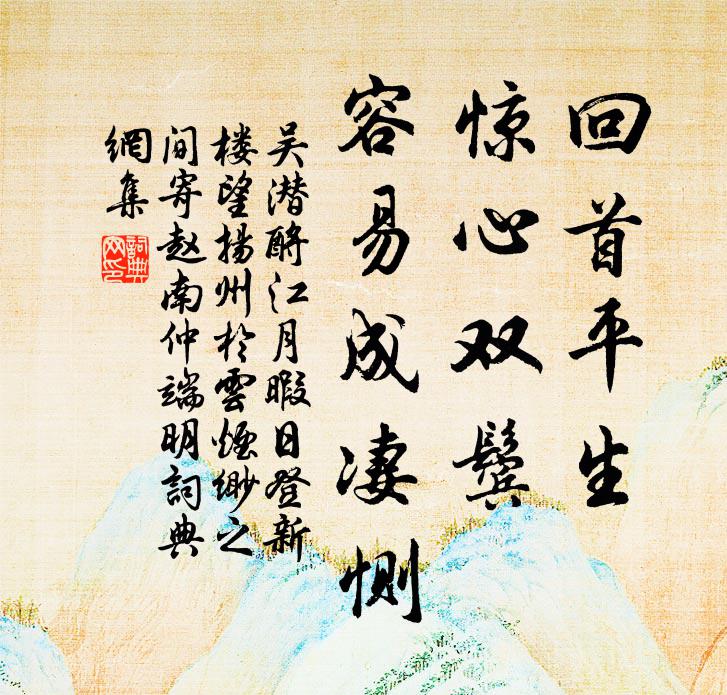 回首平生
惊心双鬓
容易成凄恻
吴潜酹江月暇日登新
楼望揚州於雲煙緲之
间寄赵南仲端明詞典
網集
詞典
网印